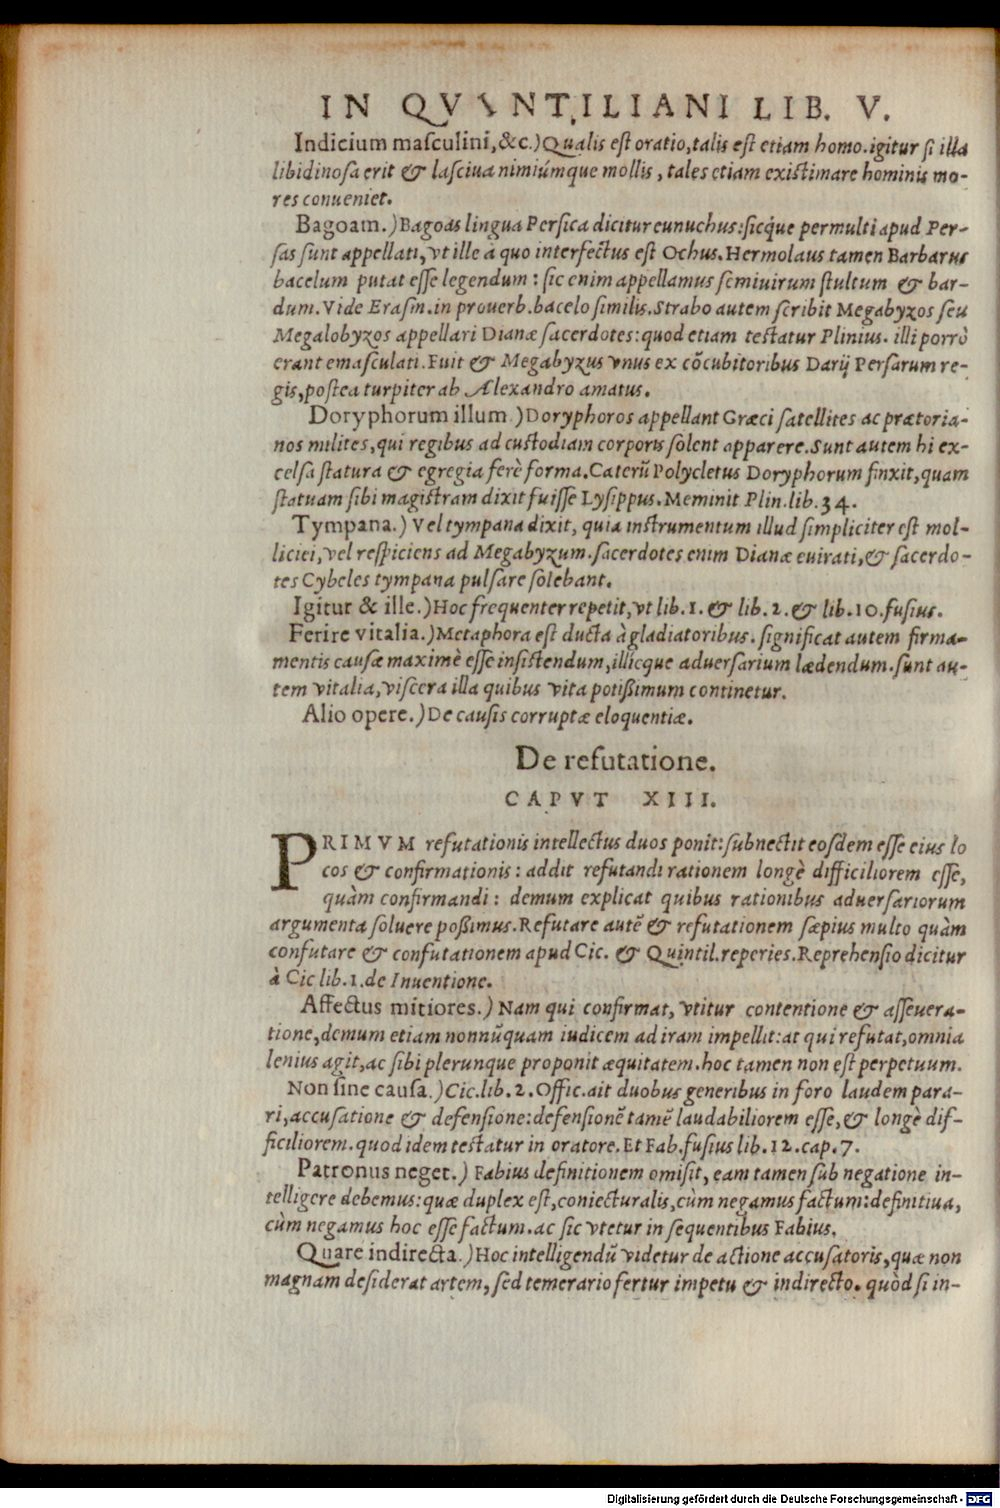 IN QVINTILIANI LIB. V.
Indicium masculini, &c.) Qualis est oratio, talis est etiam homo. igitur si illa
libidinosa erit & lasciua nimiúmque mollis, tales etiam existimare hominis mo-
res conueniet.
Bagoam.) Bagoas lingua Persica dicitur eunuchus: sicq́ue permulti apud Per-
sas sunt appellati, vt ille à quo interfectus est Ochus. Hermolaus tamen Barbarus
bacelum putat esse legendum: sic enim appellamus semiuirum stultum & bar-
dum. Vide Erasm. in prouerb. bacelo similis. Strabo autem scribit Megabyzos seu
Megalobyzos appellari Dianæ sacerdotes: quod etiam testatur Plinius. illi porrò
erant emasculati. Fuit & Megabyzus vnus ex cõcubitoribus Darij Persarum re-
gis, postea turpiter ab Alexandro amatus.
Doryphorum illum.) Doryphoros appellant Græci satellites ac prætoria-
nos milites, qui regibus ad custodiam corporis solent apparere. Sunt autem hi ex-
celsa statura & egregia ferè forma. Caterũ Polycletus Doryphorum finxit, quam
statuam sibi magistram dixit fuisse Lysippus. Meminit Plin. lib. 34.
Tympana.) Vel tympana dixit, quia instrumentum illud simpliciter est mol-
liciei, vel respiciens ad Megabyzum. sacerdotes enim Dianæ euirati, & sacerdo-
tes Cybeles tympana pulsare solebant.
Igitur & ille.) Hoc frequenter repetit, vt lib. 1. & lib. 2. & lib. 10. fusius.
Ferire vitalia.) Metaphora est ducta à gladiatoribus. significat autem firma-
mentis causæ maximè esse insistendum, illicque aduersarium lædendum. sunt au-
tem vitalia, viscera illa quibus vita potißimum continetur.
Alio opere.) De causis corruptæ eloquentiæ.
De refutatione.
CAPVT XIII.
PRIMVM refutationis intellectus duos ponit: subnectit eosdem esse eius lo
cos & confirmationis: addit refutandi rationem longè difficiliorem esse,
quàm confirmandi: demum explicat quibus rationibus aduersariorum
argumenta soluere poßimus. Refutare autẽ & refutationem sæpius multo quàm
confutare & confutationem apud Cic. & Quintil. reperies. Reprehensio dicitur
à Cic lib. 1. de Inuentione.
Affectus mitiores.) Nam qui confirmat, vtitur contentione & asseuera-
tione, demum etiam nonnũquam iudicem ad iram impellit: at qui refutat, omnia
lenius agit, ac sibi plerunque proponit æquitatem. hoc tamen non est perpetuum.
Non sine causa.) Cic. lib. 2. Offic. ait duobus generibus in foro laudem para-
ri, accusatione & defensione: defensionẽ tamẽ laudabiliorem esse, & longè dif-
ficiliorem. quod idem testatur in oratore. Et Fab. fusius lib. 12. cap. 7.
Patronus neget.) Fabius definitionem omisit, eam tamen sub negatione in-
telligere debemus: quæ duplex est, coniecturalis, cùm negamus factum: definitiua,
cùm negamus hoc esse factum. ac sic vtetur in sequentibus Fabius.
Quare indirecta.) Hoc intelligendũ videtur de actione accusatoris, quæ non
magnam desiderat artem, sed temerario fertur impetu & indirecto. quòd si in-
Digitalisierung gefördert durch die Deutsche Forschungsgemeinschaft - DFG